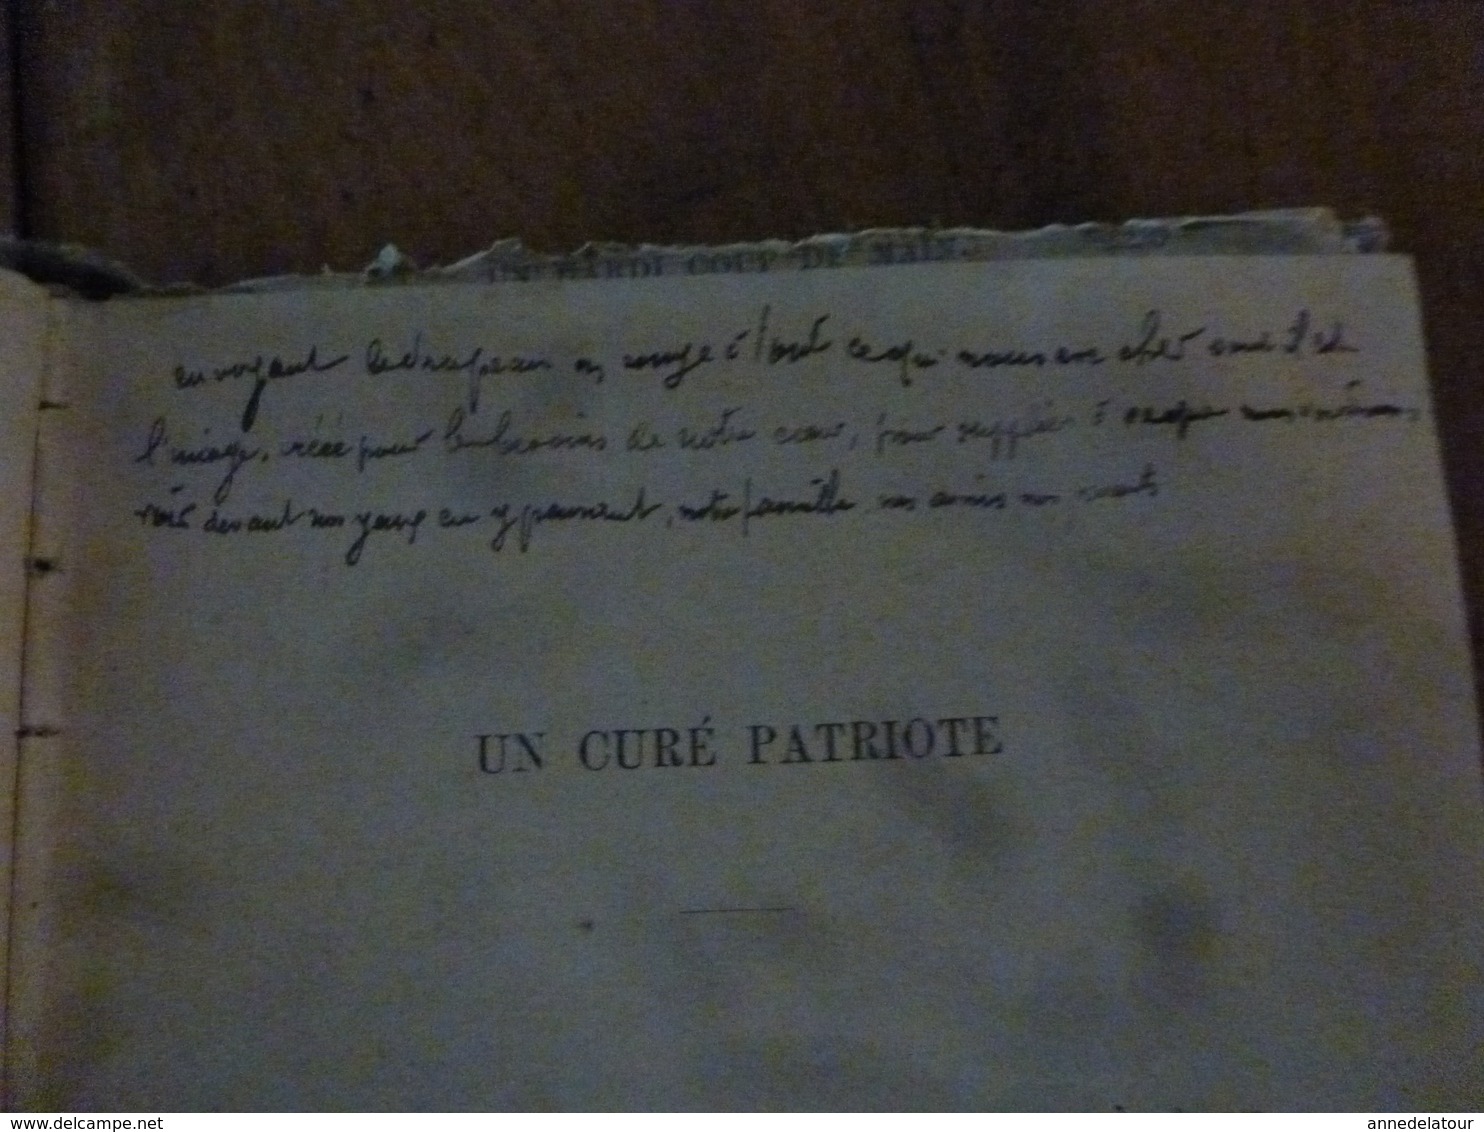 UN HARDI COUP DE MAIN.
en voyant le drapeau on songe à tout ce qui nous est cher
l'image, créée pour les besoins de notre cœur, pour suppléer à
devant nos yeux en y pensant, notre famille nos amis nos
UN CURÉ PATRIOTE
www.delcampe.net
annedelatour